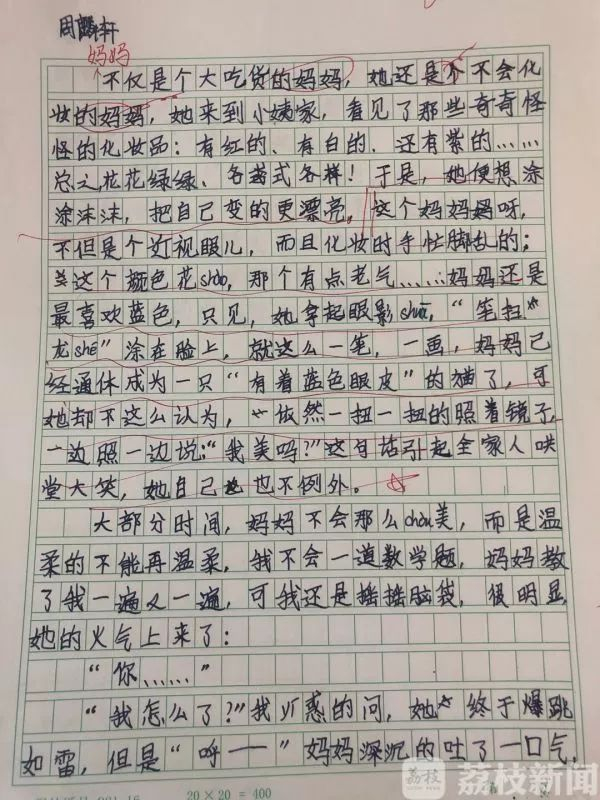 周麟轩
妈妈
不仅是个大吃货的妈妈，她还是个不会化
妆的妈妈，她来到小姨家，看见了那些奇奇怪
怪的化妆品：有红的、有白的、还有紫的……
总之花花绿绿、各式各样！于是，她便想涂
涂沫沫，把自己变的更漂亮，这个妈妈呀，
不但是个近视眼儿，而且化妆时手忙脚乱的；
这个颜色花shào，那个有点老气……妈妈还是
最喜欢蓝色，只见，她拿起眼影shuā，“笔扫
龙shé”涂在脸上，就这么一笔，一画，妈妈已
经通体成为一只“有着蓝色眼皮”的猫了，可
她却不这么认为，依然一扭一扭的照着镜子，
一边照一边说：“我美吗？”这句话引起全家人哄
堂大笑，她自己也不例外。
大部分时间，妈妈不会那么chòu美，而是温
柔的不能再温柔，我不会一道数学题，妈妈教
了我一遍又一遍，可我还是摇摇脑袋，很明显，
她的火气上来了：
“你……”
“我怎么了？”我疑惑的问，她终于爆跳
如雷，但是“呼——”妈妈深沉的吐了一口气，
20×20=400
荔枝 荔枝新闻